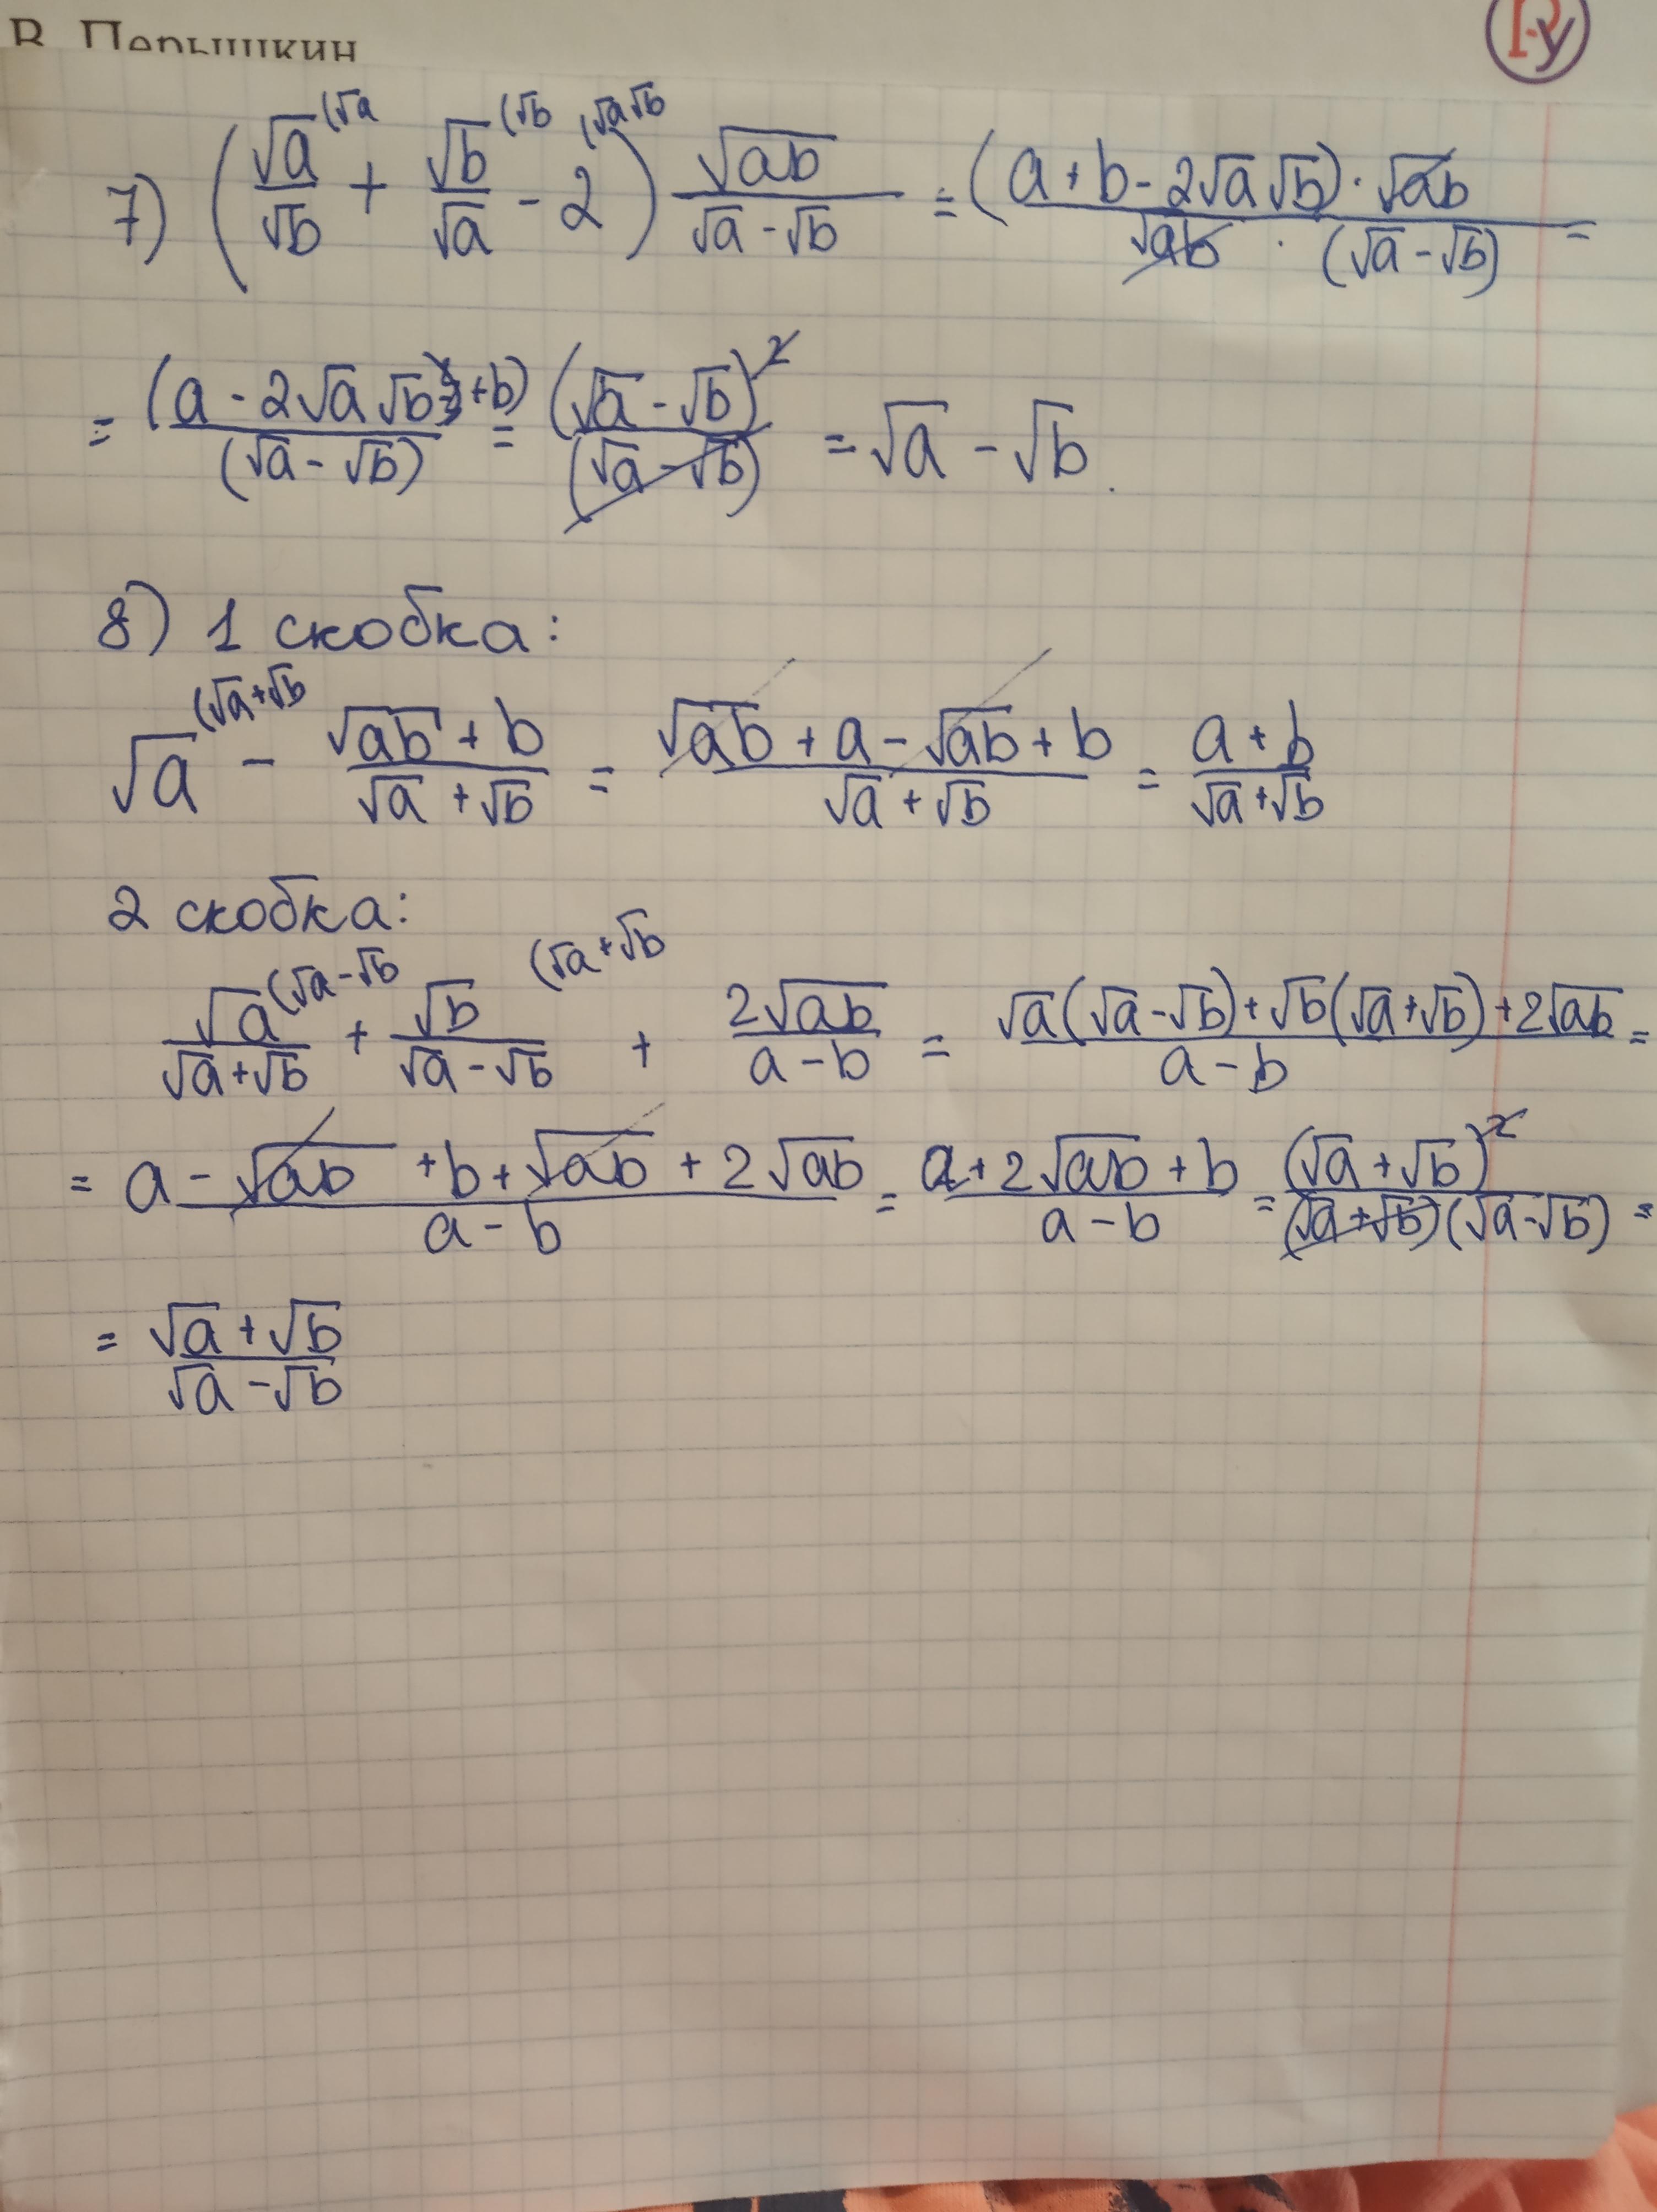 В. Перышкин
Ру
7) (√a/√b + √b/√a - 2) √ab/(√a - √b) = (a + b - 2√a√b)·√ab/(√ab · (√a - √b)) =
(√a (√b (√a√b
= (a - 2√a√b + b)/(√a - √b) = (√a - √b)²/(√a - √b) = √a - √b.
8) 1 скобка:
(√a+√b
√a - (√ab + b)/(√a + √b) = (√ab + a - √ab + b)/(√a + √b) = (a + b)/(√a + √b)
2 скобка:
(√a-√b (√a+√b
√a/(√a+√b) + √b/(√a-√b) + 2√ab/(a-b) = (√a(√a-√b)+√b(√a+√b)+2√ab)/(a-b) =
= (a - √ab + b + √ab + 2√ab)/(a-b) = (a + 2√ab + b)/(a-b) = (√a+√b)²/((√a+√b)(√a-√b)) =
= (√a+√b)/(√a-√b)